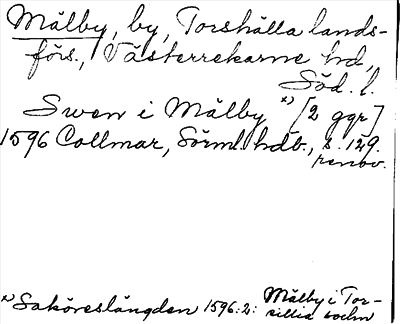 Målby, by, Torshälla lands-
förs., Västerrekarne hd,
Söd. l.
Swen i Målby x) [2 ggr]
1596 Collmar, Sörml. hdb., s. 129.
renov.
x) Saköreslängden 1596:2: Målby i Tor-
sillia sochn